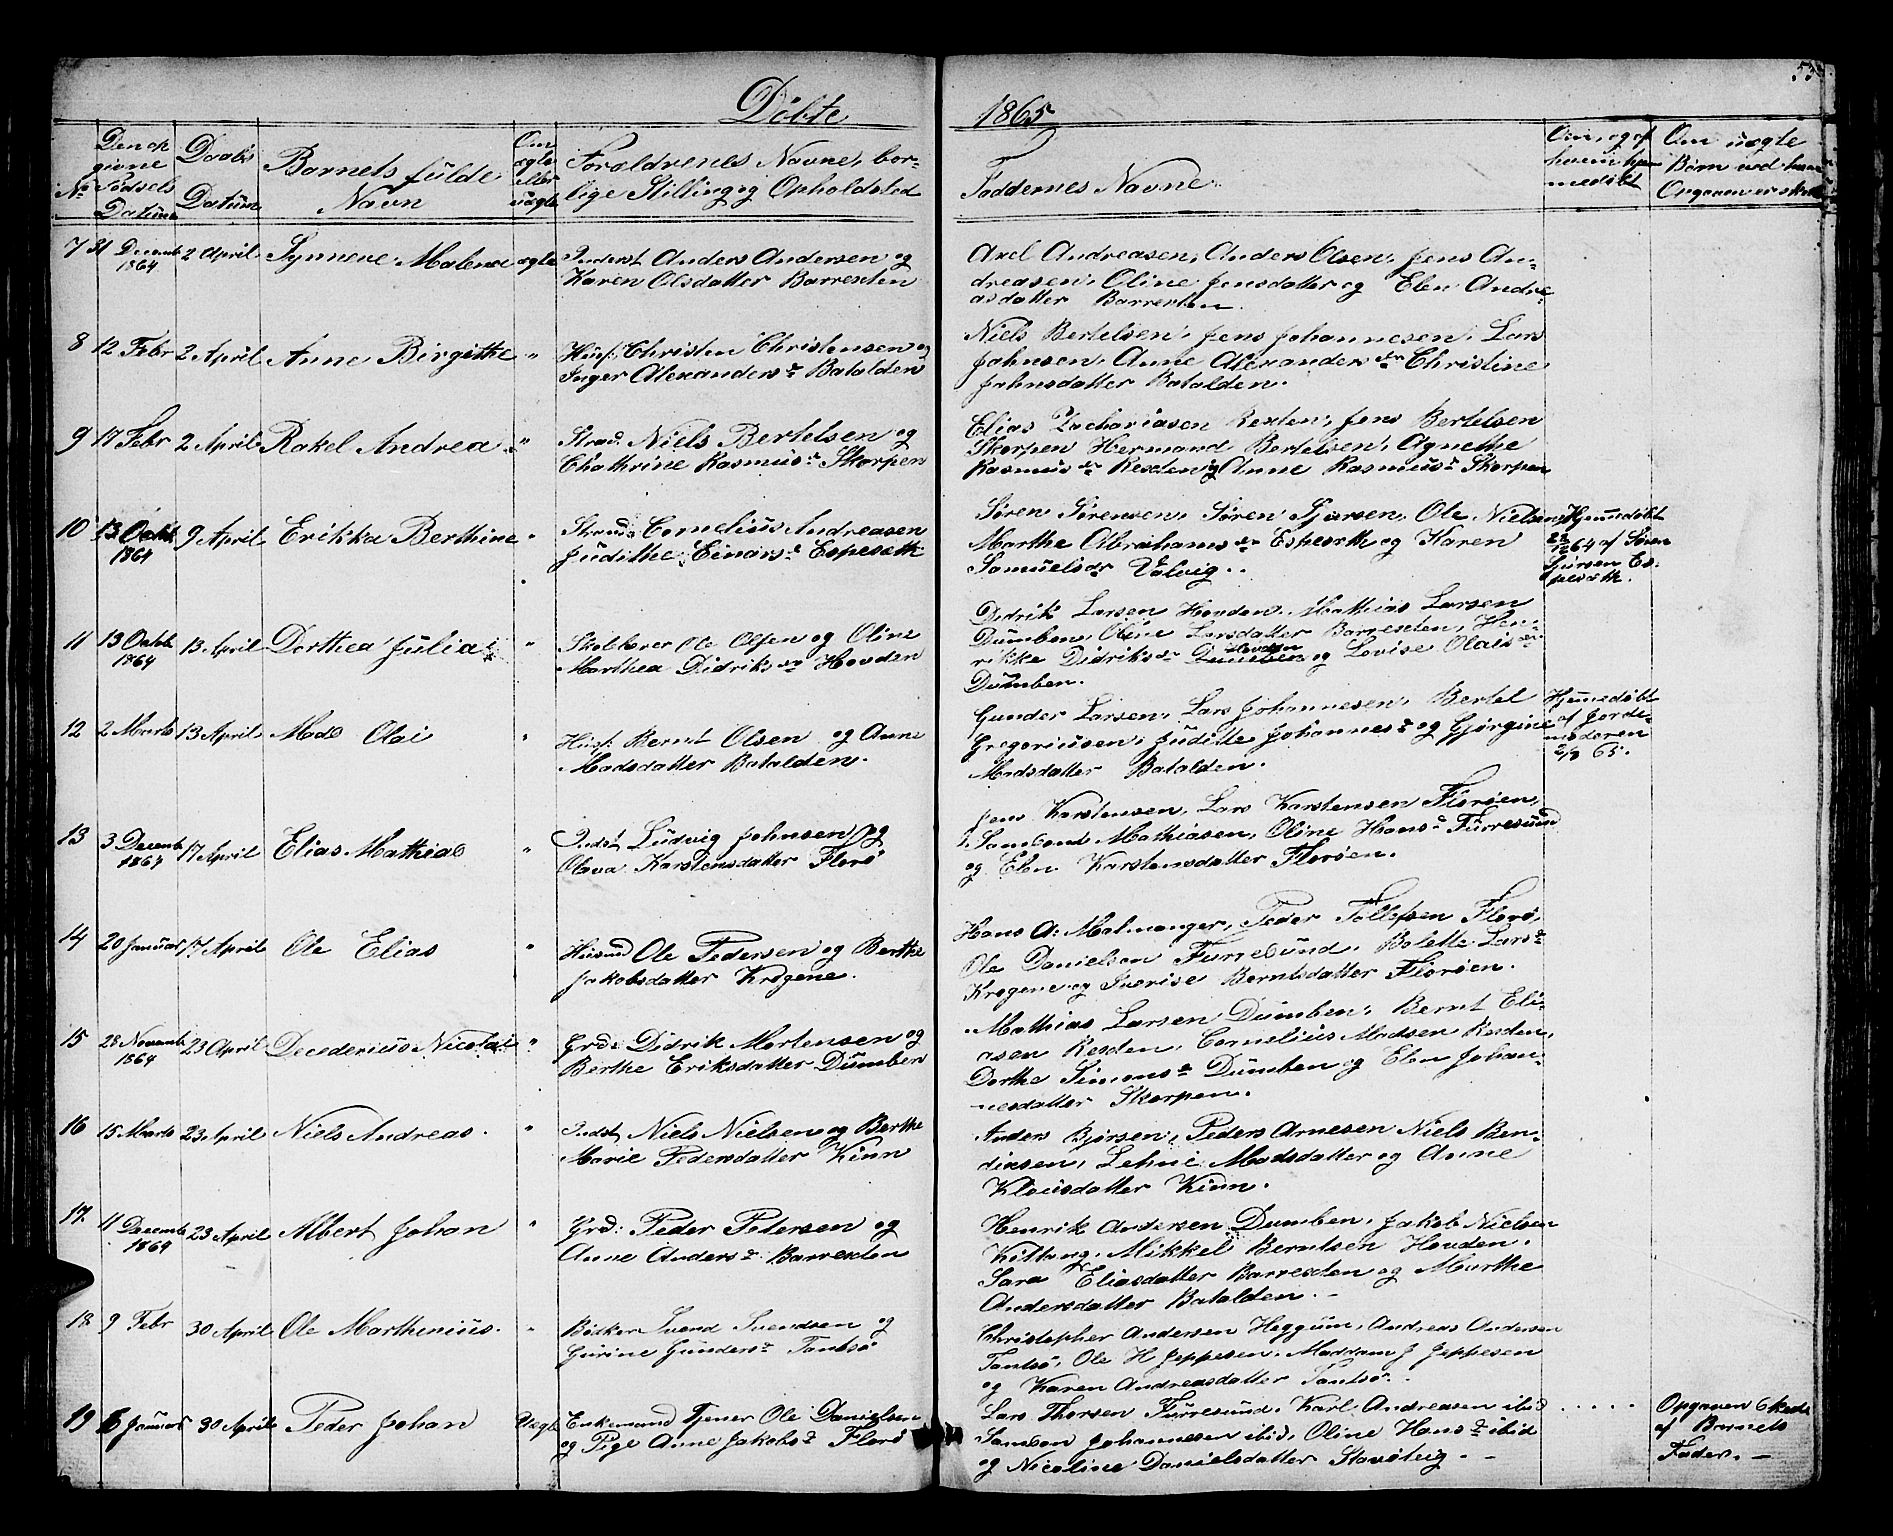 Döbte 1865
53
No
Den op
givne
Födsels
Datum
Daabs
Datum
Barnets fulde
Navn
Om
ægte
eller
uægte
Forældrenes Navne, bor-
lige Stilling og Opholdsted
Faddernes Navne
Om, og af
hvem hjem
medöbt
Om uægte
Börn ved hvem
Opgaven er skeet
7 31 Decemb 1864 2 April Synneve Malene ægte Inderst Anders Andersen og
Karen Olsdatter Barrexten
Axel Andreasen, Anders Olsen, Jens An-
dreasen, Oline Jensdatter og Elen Andre-
asdatter Barrexten.
8 12 Febr 2 April Anne Birgithe " Husf: Christen Christensen og
Inger Alexandersdr Batalden
Niels Bertelsen, Jens Johannesen, Lars
Jahnsen, Anne Alexandersdr Christine
Jahnsdatter Batalden.
9 17 Febr 2 April Rakel Andrea " Strad. Niels Bertelsen og
Chathrine Rasmusdr Skorpen
Elias Zachariasen Rexten, Jens Bertelsen
Skorpen Hermand Bertelsen, Agnethe
Rasmusdr Rexten og Anne Rasmusdr Skorpen
10 13 Octbr 1864 9 April Erikka Berthine " Strand: Cornelius Andreasen
Judithe Einarsdr Espeseth
Sören Sörensen, Sören Gjursen, Ole Nielsen,
Marthe Abrahamsdr Espeseth og Karen
Samuelsdr Valvig.
Hjemmdöbt
22/12 64 af Sören
Gjursen Es-
peseth.
11 13 Octbr 1864 13 April Dorthea Julia " Skolelærer Ole Olsen og Oline
Marthea Didriksdr Hovden
Didrik Larsen Hovden, Mathias Larsen
Dumben, Oline Larsdatter Barrexten, Hen-
rikke Didriksdr Hovden og Lovise Olaisdr
Dumben.
12 2 Marts 13 April Mads Olai " Husf: Bernt Olsen og Anne
Madsdatter Batalden.
Gunder Larsen, Lars Johannesen, Bertel
Gregoriussen, Judithe Johannesdr og Gjörgine
Madsdatter Batalden.
Hjemmedöbt
af Jorde-
moderen
2/3 65.
13 3 Decemb 1864 17 April Elias Mathias " Indst Ludvig Johnsen og
Olava Karstensdatter Florö
Jens Karstensen, Lars Karstensen Floröen,
Samsond Mathiasen, Oline Hansdr Furresund
og Elen Karstensdatter Floröen.
14 20 Januar 17 April Ole Elias " Husmd Ole Pedersen og Berthe
Jakobsdatter Krogene.
Hans A: Malmanger, Peder Tollefsen Florö,
Ole Danielsen Furresund, Bolette Larsdr
Krogene og Berntsdatter Floröen.
15 28 Novemb 1864 23 April Decederius Nicolai " Grd: Didrik Mortensen og
Berthe Eriksdatter Dumben
Mathias Larsen Dumben, Bernt Eli-
asen Rexten, Cornelius Madsen Rexten,
Dorthe Simonsdr Dumben og Elen Johan-
nesdatter Skorpen.
16 15 Marts 23 April Niels Andreas. " Indst, Niels Nielsen og Berthe
Marie Pedersdatter Kinn
Anders Björsen, Peders Arnesen Niels Ben-
dixsen, Lehne Madsdatter og Anne
Klausdatter Kinn.
17. 11 Decemb 1864 23 April Albert Johan " Grd: Peder Petersen og
Anne Andersdr Barrexten
Henrik Andersen Dumben, Jakob Nielsen
Kittang, Mikkel Berntsen Hovden,
Sara Eliasdatter Barrexten og Marthe
Andersdatter Batalden.
18 9 Febr 30 April Ole Marthenius. " Bödker Svend Svendsen og
Gurine Gundersdr Tansö
Christopher Andersen Heggum, Andreas Andersen
Tansö, Ole H Jeppesen, Maddam J Jeppesen
og Karen Andreasdatter Tansö.
19 6 Januar 30 April Peder Johan Uægte Enkemand Tjener Ole Danielsen
og Pige Anne Jakobsdr Florö
Lars Thorsen Furresund, Karl Andreasen ibid
Samson Johannesen ibid, Oline Hansdr ibid
og Nicoline Danielsdatter Stavöteig.
. . . . .
Opgaven Skede
af Barnets
Fader.